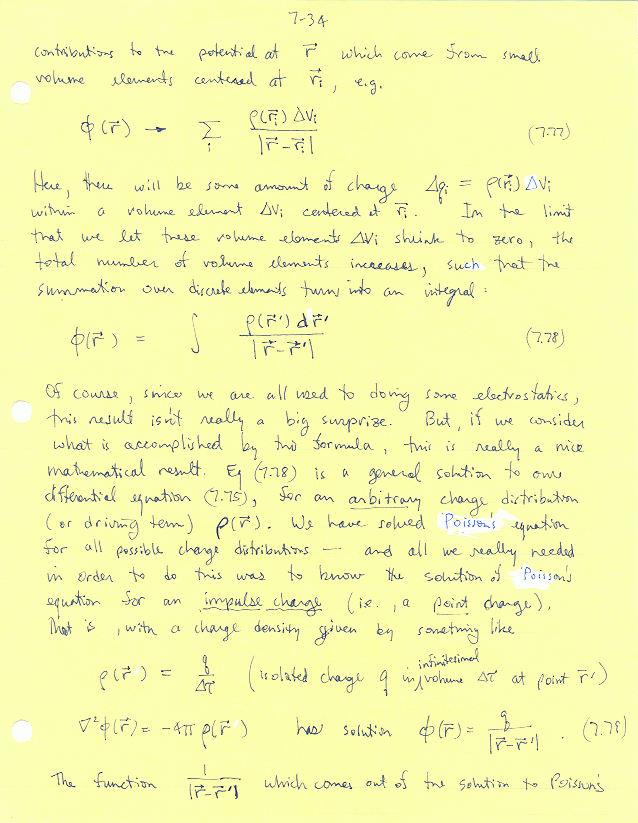 7-34
contributions to the potential at r⃗ which come from small
volume elements centered at r⃗i, e.g.
ϕ(r⃗) → Σi ρ(r⃗i) ΔVi / |r⃗-r⃗i| (7.77)
Here, there will be some amount of charge Δqi = ρ(r⃗i) ΔVi
within a volume element ΔVi centered at r⃗i. In the limit
that we let these volume elements ΔVi shrink to zero, the
total number of volume elements increases, such that the
summation over discrete elements turns into an integral:
ϕ(r⃗) = ∫ ρ(r⃗') dr⃗' / |r⃗-r⃗'| (7.78)
Of course, since we are all used to doing some electrostatics,
this result isn't really a big surprize. But, if we consider
what is accomplished by this formula, this is really a nice
mathematical result. Eq (7.78) is a general solution to our
differential equation (7.75), for an arbitrary charge distribution
(or driving term) ρ(r⃗). We have solved Poisson's equation
for all possible charge distributions — and all we really needed
in order to do this was to know the solution of Poisson's
equation for an impulse charge (ie., a point charge).
That is, with a charge density given by something like
ρ(r⃗') = q/Δτ (isolated charge q in infinitesimal volume Δτ at point r⃗')
∇²ϕ(r⃗) = -4π ρ(r⃗') has solution ϕ(r⃗) = q / |r⃗-r⃗'| . (7.79)
The function 1 / |r⃗-r⃗'| which comes out of the solution to Poisson's